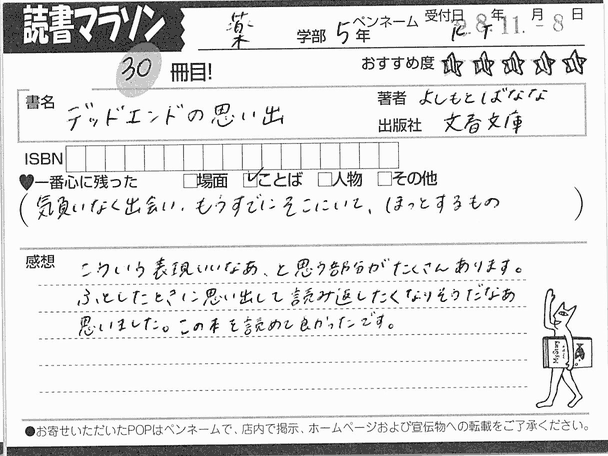 読書マラソン
薬 学部 5年 ペンネーム K T 受付日 8年11月-8日
30 冊目! おすすめ度 ☆☆☆☆☆
書名 デッドエンドの思い出 著者 よしもとばなな
出版社 文春文庫
ISBN
♥一番心に残った □場面 ☑ことば □人物 □その他
(気負いなく出会い、もうすでにそこにいて、ほっとするもの)
感想 こういう表現いいなあ、と思う部分がたくさんあります。
ふとしたときに思い出して読み返したくなりそうだなあ
思いました。この本を読めて良かったです。
Mystery
●お寄せいただいたPOPはペンネームで、店内で掲示、ホームページおよび宣伝物への転載をご了承ください。